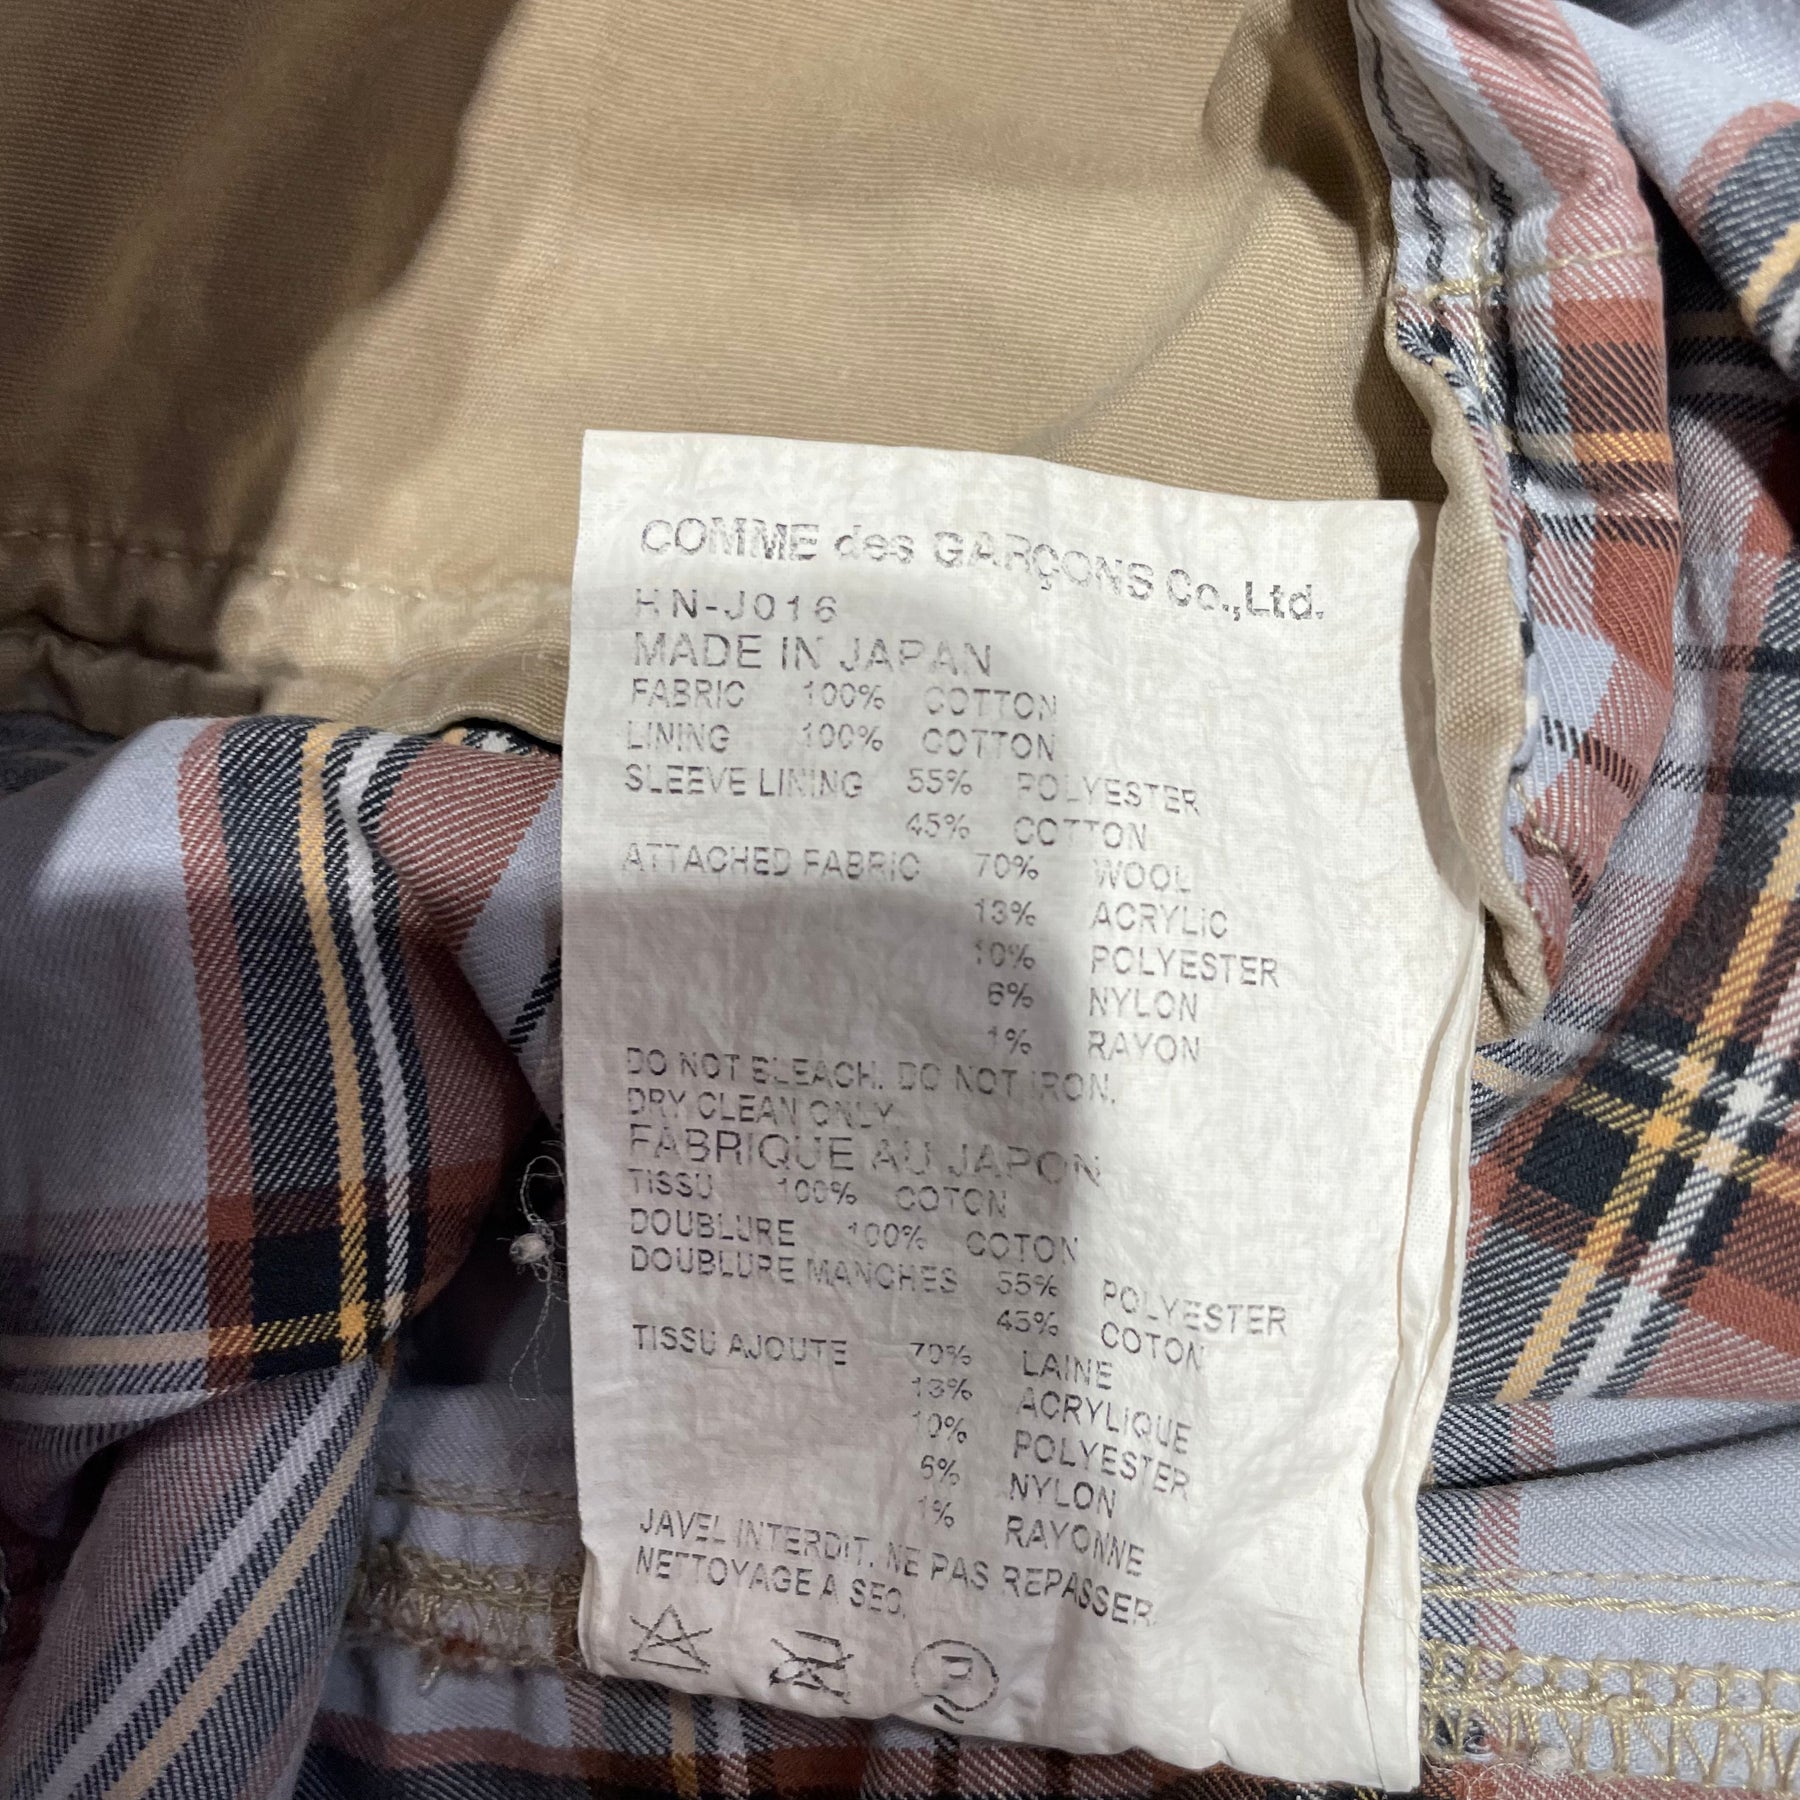 COMME des GARÇONS Co.,Ltd.
HN-J016
MADE IN JAPAN
FABRIC 100% COTTON
LINING 100% COTTON
SLEEVE LINING 55% POLYESTER
45% COTTON
ATTACHED FABRIC 70% WOOL
13% ACRYLIC
10% POLYESTER
6% NYLON
1% RAYON
DO NOT BLEACH. DO NOT IRON.
DRY CLEAN ONLY.
FABRIQUE AU JAPON
TISSU 100% COTON
DOUBLURE 100% COTON
DOUBLURE MANCHES 55% POLYESTER
45% COTON
TISSU AJOUTE 70% LAINE
13% ACRYLIQUE
10% POLYESTER
6% NYLON
1% RAYONNE
JAVEL INTERDIT. NE PAS REPASSER.
NETTOYAGE A SEC.
P